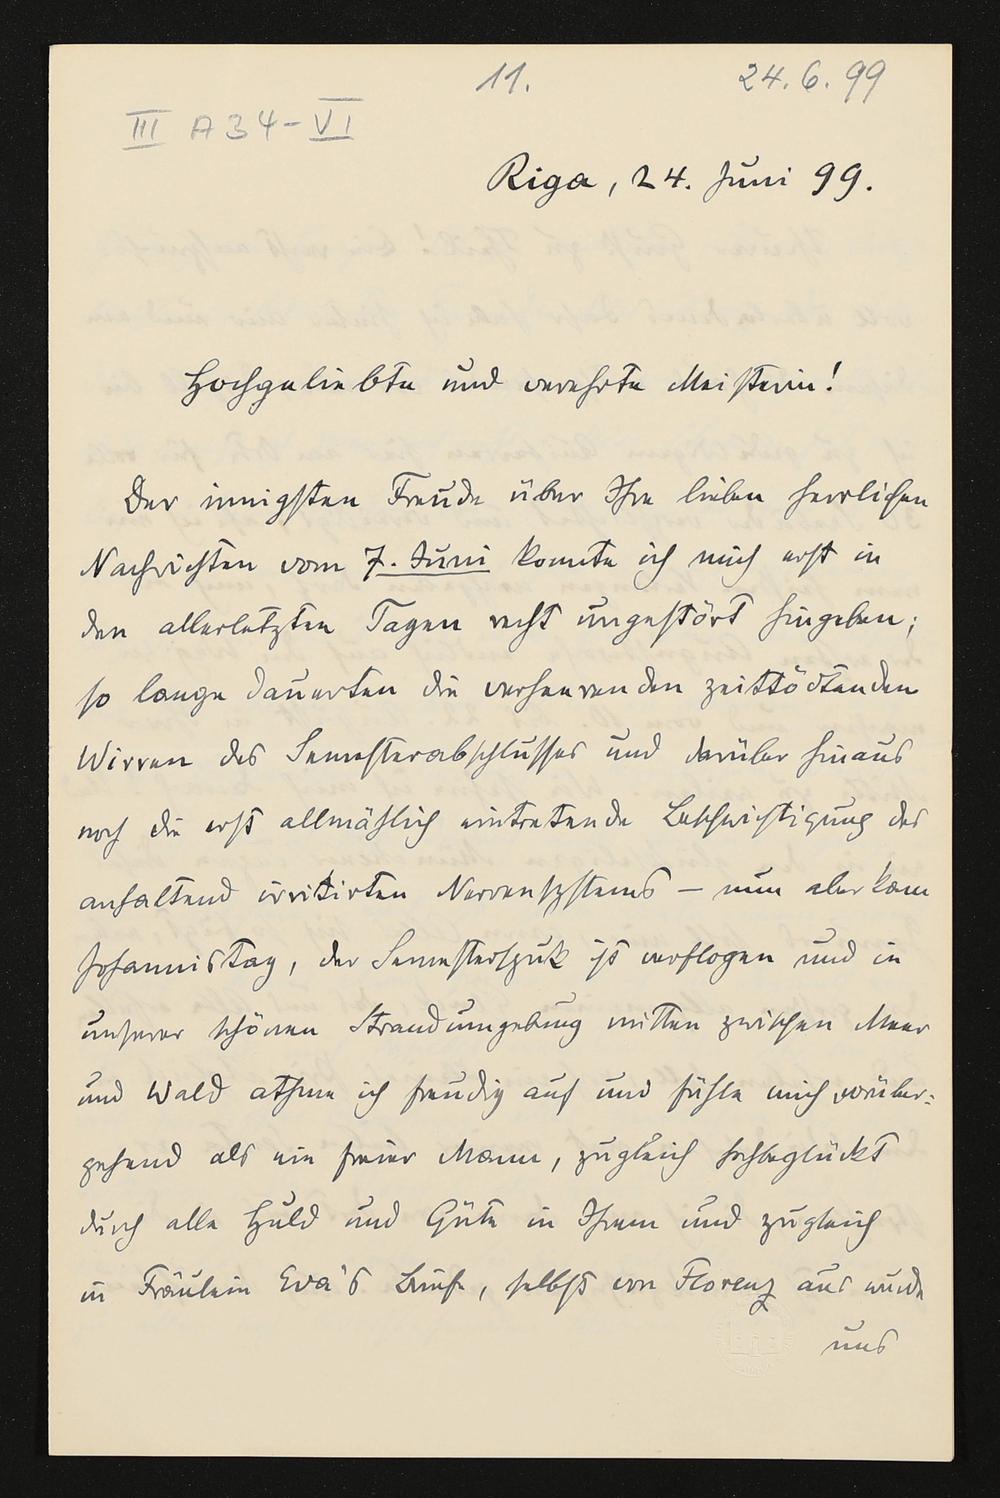 11.
24.6.99
III A34-VI
Riga, 24. Juni 99.
Hochgeliebte und verehrte Meisterin!
Der innigsten Freude über Ihre lieben herrlichen
Nachrichten vom 7. Juni konnte ich mich erst in
den allerletzten Tagen recht ungestört hingeben;
so lange dauerten die verheerenden zeittödtenden
Wirren des Semesterabschlusses und darüber hinaus
noch die erst allmählich eintretende Beschwichtigung des
anhaltend irritirten Nervensystems – nun aber kam
Johannistag, der Semesterspuk ist verflogen und in
unserer schönen Strandumgebung mitten zwischen Meer
und Wald athme ich freudig auf und fühle mich vorüber=
gehend als ein freier Mann, zugleich hochbeglückt
durch alle Huld und Güte in Ihrem und zugleich
in Fräulein Eva's Briefe, selbst von Florenz aus wurde
uns